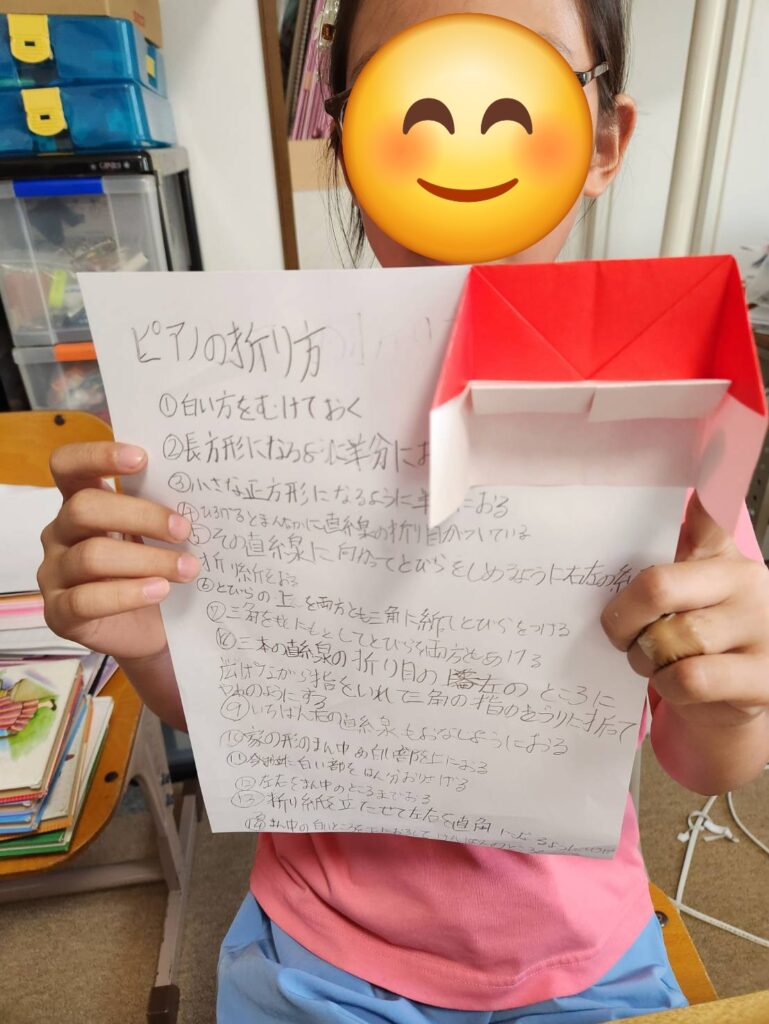 ピアノの折り方
①白い方をむけておく
②長方形になるように半分にお
③小さな正方形になるように におる
④ひろげるとまんなかに直線の折り目がついている
⑤その直線に向かってとびらをしめるように右左の
折り紙をおる
⑥とびらの上を両方とも三角に折しとびらをつける
⑦三角をもとにもどしてとびらを両方ともあける
⑧三本の直線の折り目の左のところに
広げながら指をいれて三角の指のをうりに折って
やねのおにする
⑨いちばん右の直線もおなじようにおる
⑩家の形のまん中の白い部を上におる
⑪ 白い部をはん分おり げる
⑫左右をまん中のところまでおる
⑬折り紙を立たせて左右を直角に
⑭まん中の白いところを